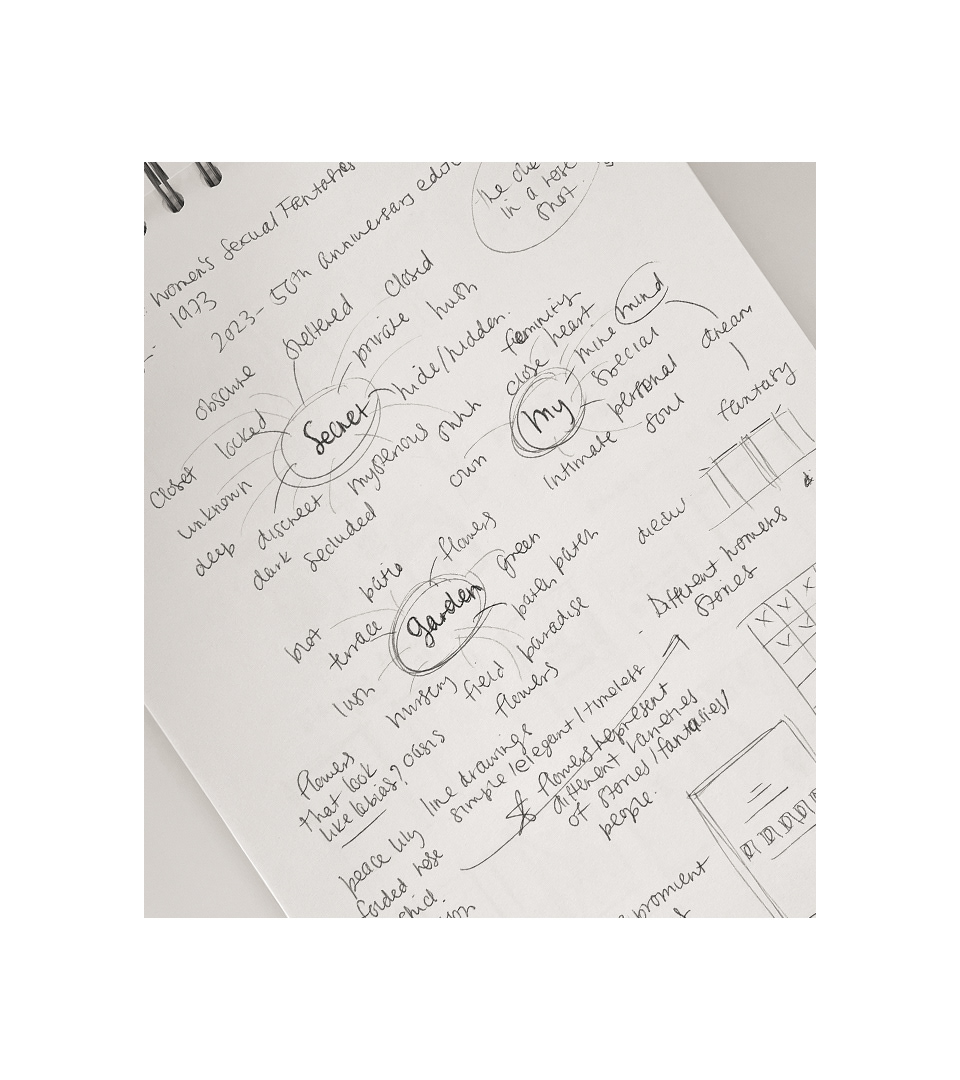 Women's Sexual Fantasies
1973
2023 - 50th anniversary
in a rose
shot.
sheltered
closed
private
hush
obscure
hide/hidden.
locked
Secret
Closet
mysterious
unknown
discreet
deep
secluded
dark
feminity
heart
mind
close
mine
special
dream
My
personal
fantasy
soul
own
intimate
flowers
patio
green
garden
terrace
paradise
lush
nursery
field
flowers
oasis
Different womens
stories
Flowers
that look
like labias?
line drawings
simple/elegant/timeless
flowers represent
different varieties
of stories/fantasies/
people.
peace lily
folded rose